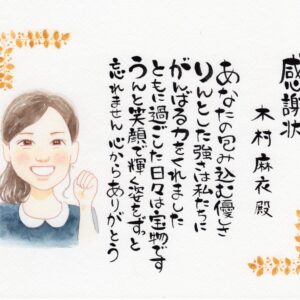 感謝状
木村麻衣殿
あなたの包み込む優しさ
りんとした強さは私たちに
がんばる力をくれました
ともに過ごした日々は宝物です
うんと笑顔で輝く姿をずっと
忘れません心からありがとう